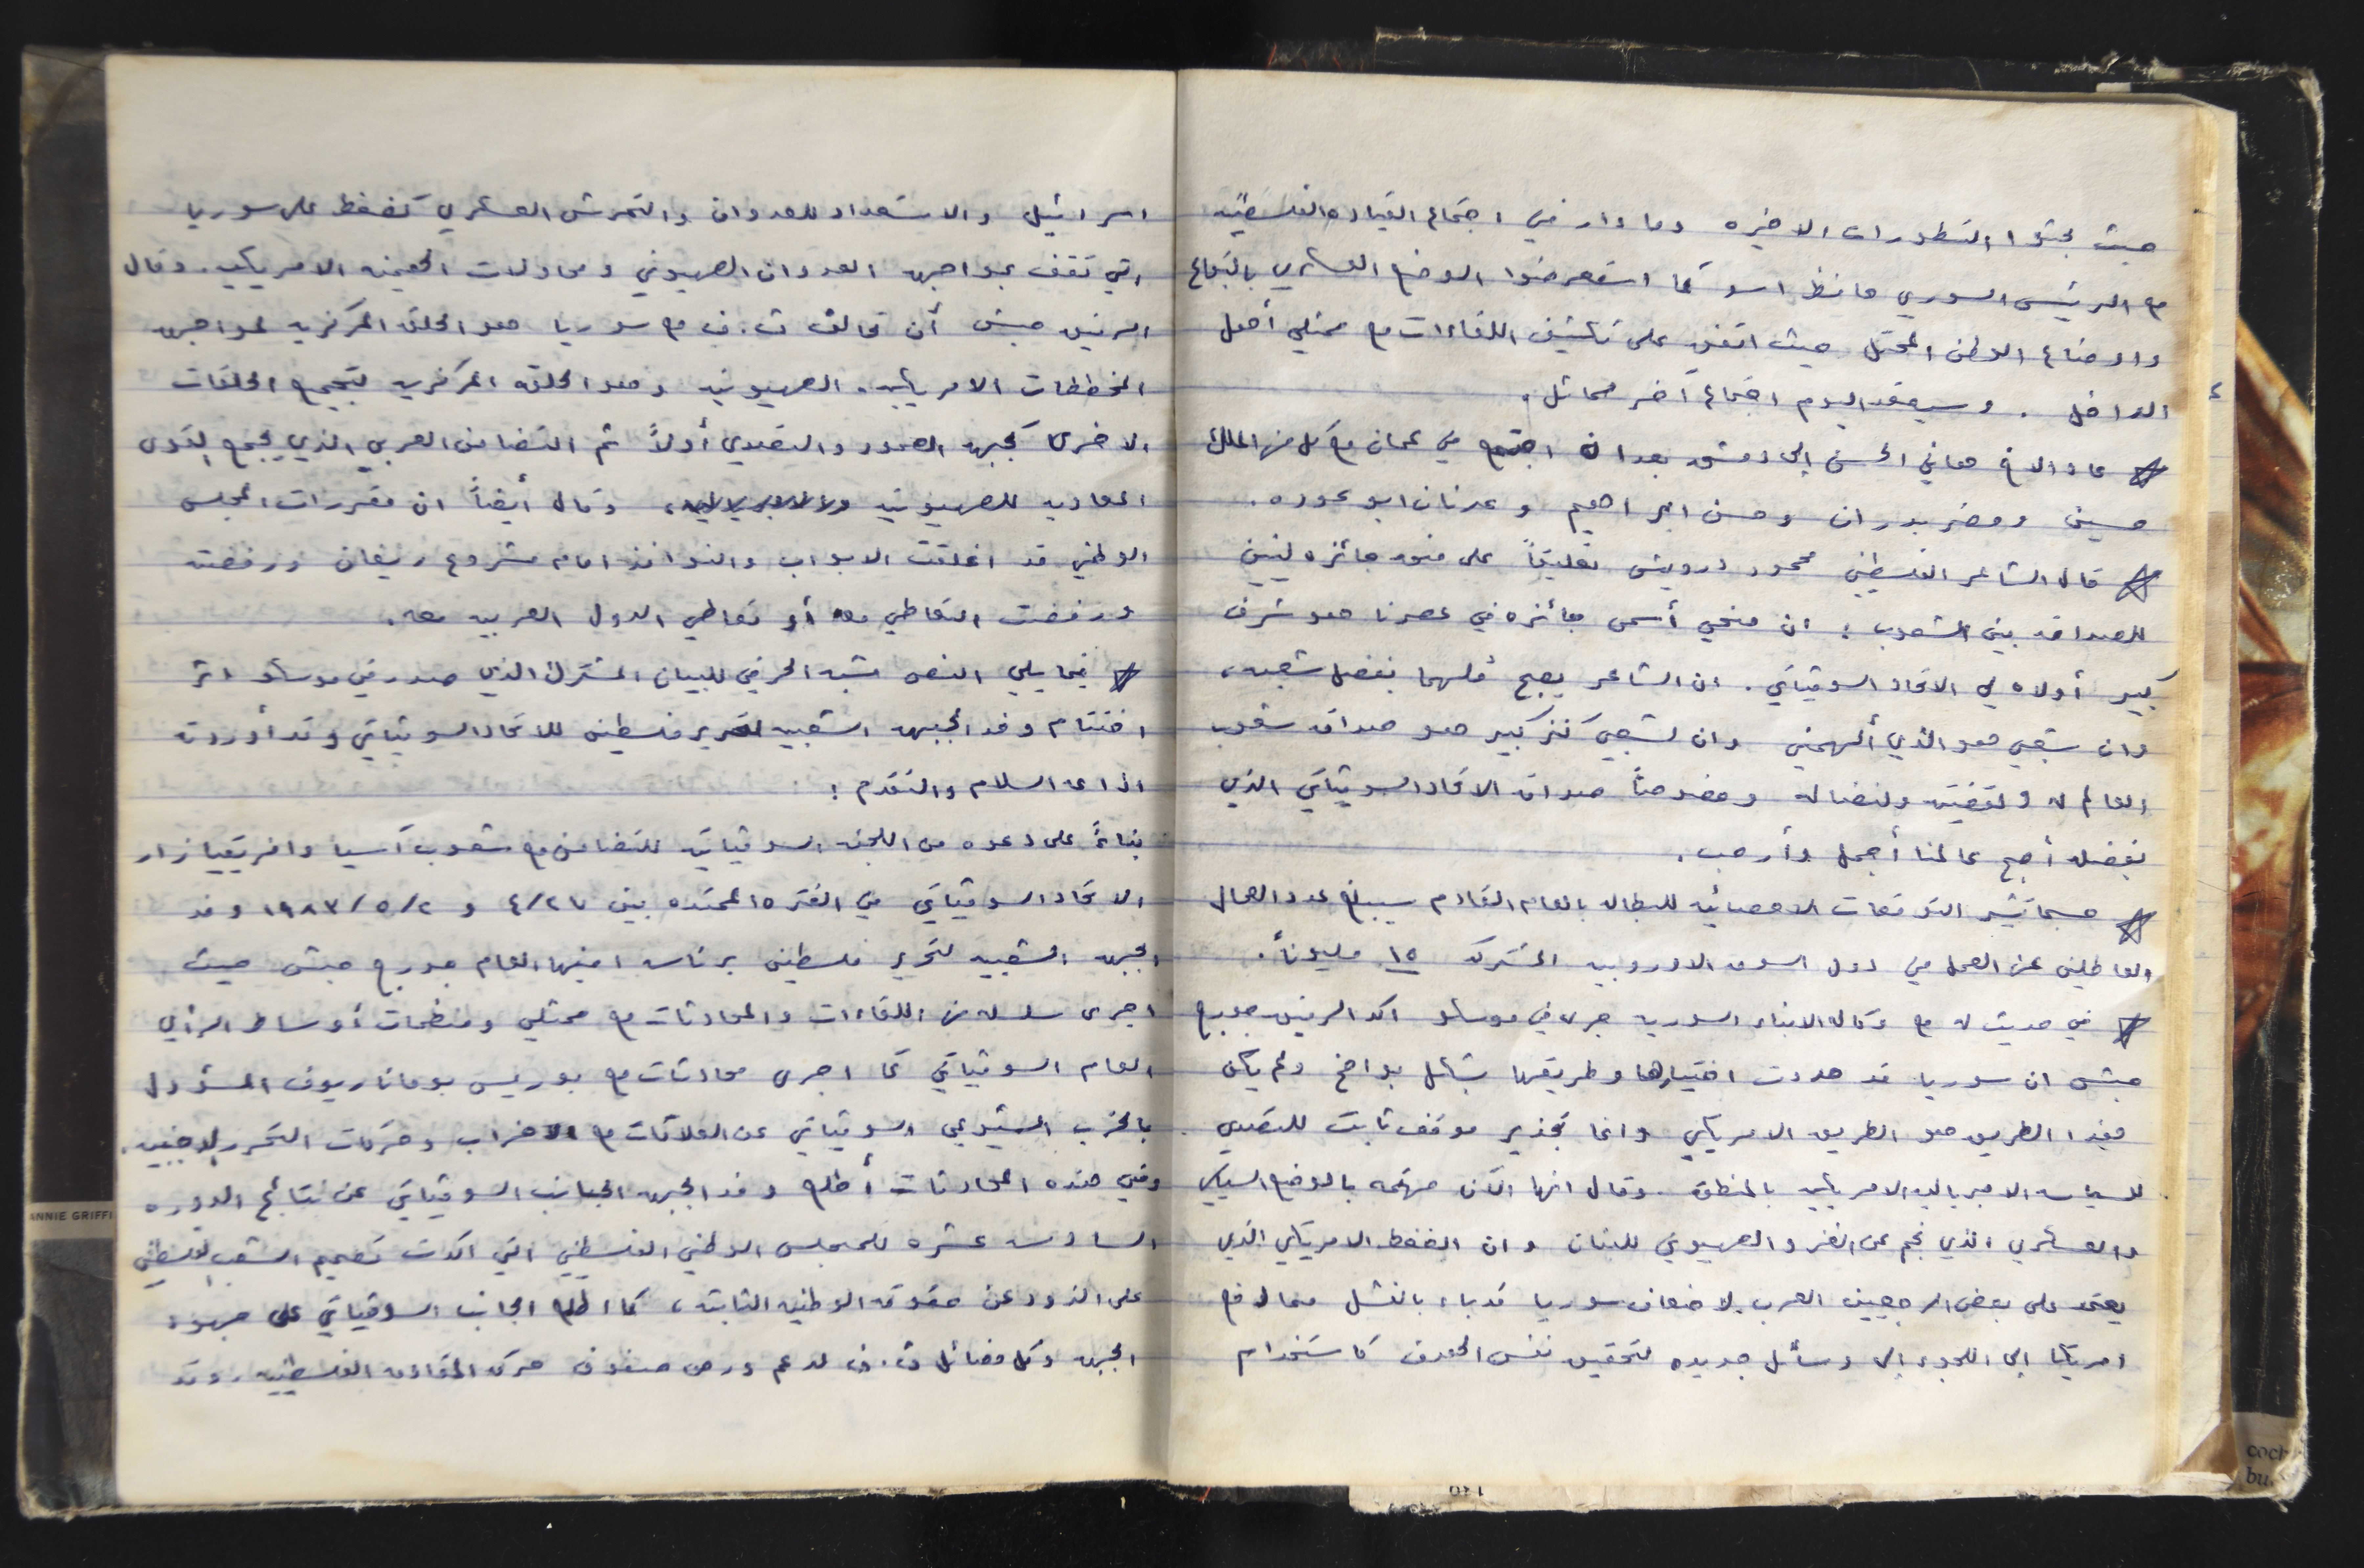 حيث بحثوا التطورات الاخيره وما دار في اجتماع القياده الفلسطينيه
مع الرئيس السوري حافظ اسد كما استعرضوا الوضع العسكري بالبقاع
واوضاع الوطن المحتل حيث اتفق على تكثيف اللقاءات مع ممثلي أهل
الداخل . وسيعقد اليوم اجتماع آخر مماثل .
☆ عاد الاخ هاني الحسن إلى دمشق بعد ان اجتمع في عمان مع كل من الملك
حسين ومضر بدران وحسن ابراهيم وعدنان ابو عوده .
☆ قال الشاعر الفلسطيني محمود درويش تعليقاً على منحه جائزه لينين
للصداقه بين الشعوب : ان منحي أسمى جائزه في عصرنا هو شرف
كبير أولاه لي الاتحاد السوڤياتي . ان الشاعر يصبح ملهما بفضل شعبه ،
وان شعبي هو الذي ألهمني وان لشعبي كنز كبير هو صداقه شعوب
العالم له ولقضيته ولنضاله وخصوصاً صداقه الاتحاد السوڤياتي الذي
بفضله أصبح عالمنا أجمل وأرحب .
☆ حسبما تشير التوقعات الاحصائيه للبطاله بالعام القادم سيبلغ عدد العمال
العاطلين عن العمل في دول السوق الاوروبيه المشتركه ١٥ مليوناً .
☆ في حديث له مع وكاله الانباء السوريه جرى في موسكو اكد الرفيق جورج
حبش ان سوريا قد حددت اختيارها وطريقها بشكل واضح ولم يكن
هذا الطريق هو الطريق الامريكي وانما تجذير موقف ثابت للتصدي
للسياسه الامبرياليه الامريكيه بالمنطقه . وقال انها الآن مهتمه بالوضع السياسي
والعسكري الذي نجم عن الغزو الصهيوني للبنان وان الضغط الامريكي الذي
يعتمد على بعض الرجعيين العرب لاضعاف سوريا قد باء بالفشل مما دفع
امريكا إلى اللجوء إلى وسائل جديده لتحقيق نفس الهدف كاستخدام
اسرائيل والاستعداد للعدوان والتحرش العسكري كضغط على سوريا
التي تقف بمواجهه العدوان الصهيوني ومحاولات الهيمنه الامريكيه . وقال
الرفيق حبش أن تحالف ث . ف مع سوريا هو الحلقه المركزيه لمواجهه
المخططات الامريكيه . الصهيونيه وهو الحلقه المركزيه لتجميع الحلقات
الاخرى كجبهه الصمود والتصدي أولاً ثم التضامن العربي الذي يجمع القوى
المعاديه للصهيونيه وللامبرياليه ، وقال أيضاً ان مقررات المجلس
الوطني قد اغلقت الابواب والنوافذ امام مشروع ريغان ورفضته
ورفضت التعاطي معه أو تعاطي الدول العربيه معه .
☆ فيما يلي النص شبه الحرفي للبيان المشترك الذي صدر في موسكو اثر
اختتام وفد الجبهه الشعبيه لتحرير فلسطين للاتحاد السوڤياتي وقد أوردته
اذاعه السلام والتقدم :
بناءً على دعوه من اللجنه السوڤياتيه للتضامن مع شعوب آسيا وافريقيا زار
الاتحاد السوڤياتي في الفتره الممتده بين ٤/٢٦ و ١٩٨٣/٥/٢ وفد
الجبهه الشعبيه لتحرير فلسطين برئاسه امينها العام جورج حبش حيث
اجرى سلسله من اللقاءات والمحادثات مع ممثلي ومنظمات أوساط الرأي
العام السوڤياتي كما اجرى محادثات مع بوريس بوماناريوف المسؤول
بالحزب الشيوعي السوڤياتي عن العلاقات مع الاحزاب وحركات التحرر الاجنبيه .
وفي هذه المحادثات أطلع وفد الجبهه الجانب السوڤياتي عن نتائج الدوره
السادسه عشره للمجلس الوطني الفلسطيني التي اكدت تصميم الشعب الفلسطيني
على الذود عن حقوقه الوطنيه الثابته ، كما اطلع الجانب السوڤياتي على جهود
الجبهه وكل فصائل ث . ف لدعم ورص صفوف حركه المقاومه الفلسطينيه . وقد